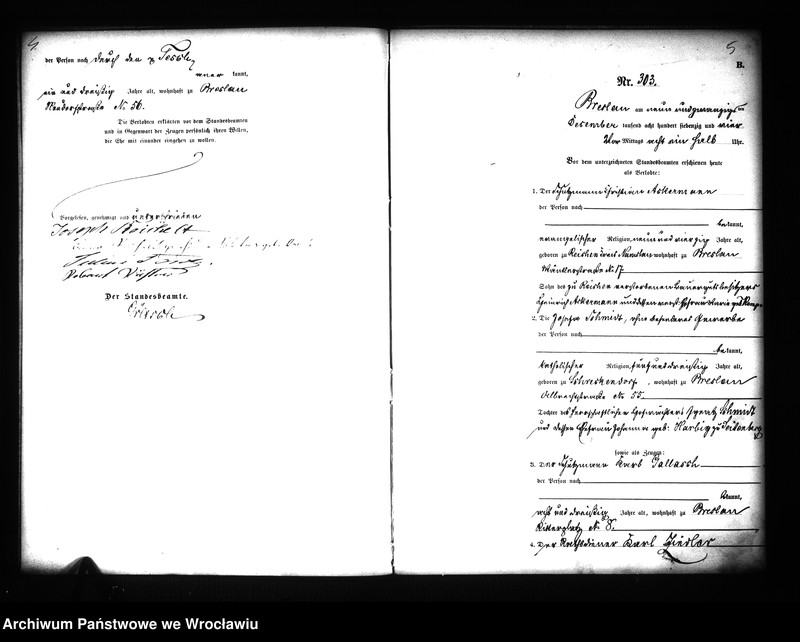 4.
der Person nach durch den p Teschl
kannt,
ein und dreißig Jahre alt, wohnhaft zu Breslau
No 56.
Die Verlobten erklärten vor dem Standesbeamten
und in Gegenwart der Zeugen persönlich ihren Willen,
die Ehe mit einander eingehen zu wollen.
Vorgelesen, genehmigt und unterschrieben
Joseph
Der Standesbeamte.
5
B.
Nr. 303.
Breslau am neun und zwanzigsten
December tausend acht hundert siebenzig und vier
Vor Mittags acht ein halb Uhr.
Vor dem unterzeichneten Standesbeamten erschienen heute
als Verlobte:
1. Der Schutzmann Christian Ackermann
der Person nach
bekannt,
evangelischer Religion, neun und vierzig Jahre alt,
geboren zu Reichen Kreis Namslau wohnhaft zu Breslau
No 17
Sohn des zu Reichen verstorbenen Bauergutsbesitzers
Heinrich Ackermann und dessen Ehefrau Maria geb
2. Die Josepha Schmidt, ohne besonderes Gewerbe
der Person nach
bekannt,
katholischer Religion, fünf und dreißig Jahre alt,
geboren zu Schreckendorf, wohnhaft zu Breslau
Albrechtstraße No 55.
Tochter des herrschaftlichen Ignatz Schmidt
und dessen Ehefrau Johanna geb: Harbig zu Seitenberg
sowie als Zeugen:
3. Der Schutzmann Karl Gallasch
der Person nach
bekannt,
acht und dreißig Jahre alt, wohnhaft zu Breslau
Ritterplatz No 8.
4. Der Rathsdiener Karl Ziedler
Archiwum Państwowe we Wrocławiu